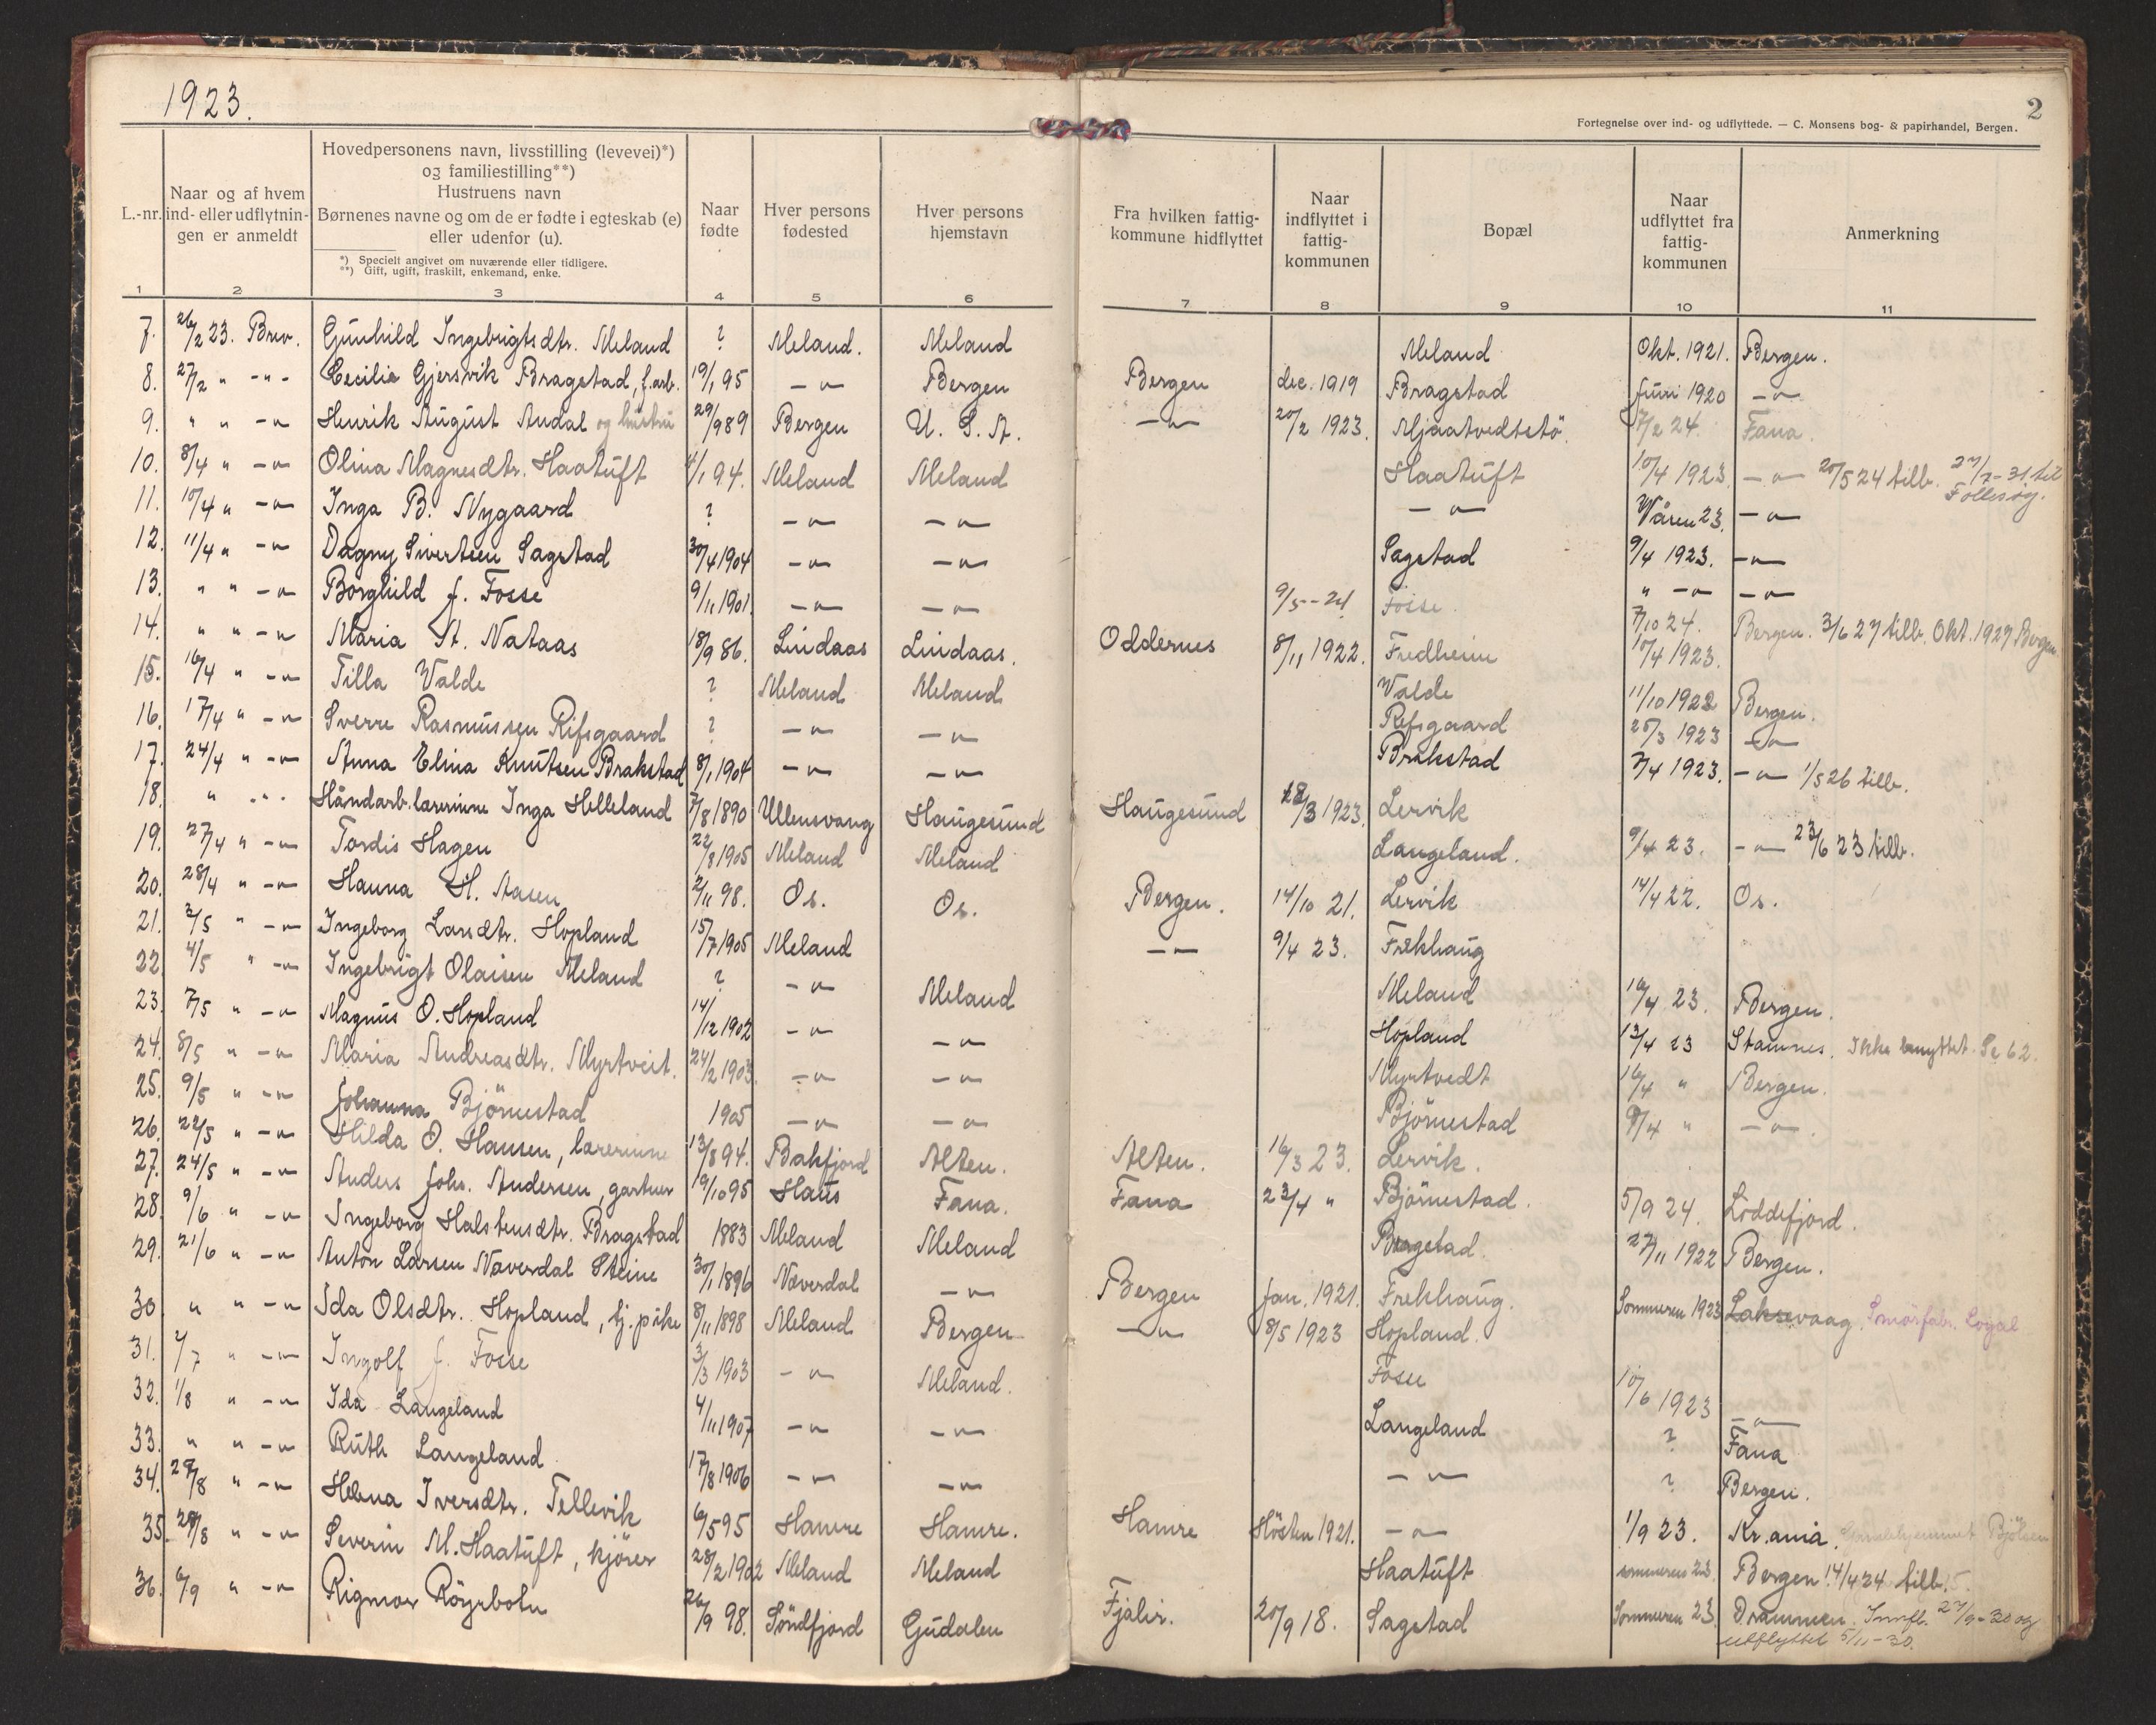 1923.
2
Fortegnelse over ind- og udflyttede. — C. Monsens bog- & papirhandel, Bergen.
L.-nr. | Naar og af hvem ind- eller udflytnin- gen er anmeldt | Hovedpersonens navn, livsstilling (levevei)*) og familiestilling**) Hustruens navn Børnenes navne og om de er fødte i egteskab (e) eller udenfor (u). | Naar fødte | Hver persons fødested | Hver persons hjemstavn | Fra hvilken fattig- kommune hidflyttet | Naar indflyttet i fattig- kommunen | Bopæl | Naar udflyttet fra fattig- kommunen | Anmerkning
*) Specielt angivet om nuværende eller tidligere.
**) Gift, ugift, fraskilt, enkemand, enke.
1 2 3 4 5 6 7 8 9 10 11
7. 26/2 23. Brev. Gunhild Ingebrigtsdtr. Meland ? Meland. Meland Meland Okt. 1921. Bergen.
8. 27/2 " -"- Cecilie Gjersvik Bragstad, f.arb. 19/1 95 -"- Bergen Bergen dec. 1919 Bragstad Juni 1920 -"-
9. " " -"- Henrik August Andal og hustru 29/9 89 Bergen U. S. A. -"- 20/2 1923. Mjaatvedtstö 7/2 24. Fana.
10. 8/4 " -"- Olina Magnesdtr. Haatuft 4/1 94. Meland Meland Haatuft 10/4 1923. -"- 20/5 24 tilb. 27/7-31 til Follesøy.
11. 10/4 " -"- Inga B. Nygaard ? -"- -"- -"- Våren 23. -"-
12. 11/4 " -"- Dagny Sivertsen Sagstad 30/4 1904 -"- -"- Sagstad 9/4 1923. -"-
13. " " -"- Borghild J. Fosse 9/11 1901. -"- -"- 9/5--24 Fosse. " -"- -"-
14. " " -"- Maria St. Nataas 18/9 86. Lindaas Lindaas. Oddernes 8/11 1922. Fredheim 7/10 24. Bergen. 3/6 27 tilb. Okt. 1927 Bergen
15. 16/4 " -"- Tilla Valde ? Meland Meland Valde 10/4 1923.
16. 17/4 " -"- Sverre Rasmussen Rifsgaard ? -"- -"- Refsgaard 11/10 1922 Bergen.
17. 24/4 " -"- Anna Elina Knutsen Brakstad 8/1 1904 -"- -"- Brakstad 25/3 1923 -"-
18. " -"- Håndarb.lærerinne Inga Helleland 7/8 1890 Ullensvang Haugesund Haugesund 18/3 1923. Lervik 7/4 1923. -"- 1/5 26 tilb.
19. 27/4 " -"- Tordis Hagen 22/8 1905 Meland Meland Langeland. 9/4 23. -"- 23/6 23 tilb.
20. 28/4 " -"- Hanna H. Aasen 2/11 98. Os. Os. Bergen. 14/10 21. Lervik 14/4 22. Os.
21. 3/5 " -"- Ingeborg Larsdtr. Hopland 15/7 1905 Meland -"- 9/4 23. Frekhaug
22. 4/5 " -"- Ingebrigt Olaisen Meland ? -"- Meland Meland 16/4 23. Bergen.
23. 7/5 " -"- Magnus O. Hopland 14/12 1902 -"- -"- Hopland 13/4 23 Stamnes. Ikke benyttet. Se 62.
24. 8/5 " -"- Maria Andreasdtr. Myrtveit. 24/2 1903. -"- -"- Myrtvedt 16/4 " Bergen.
25. 9/5 " -"- Johanna Björnestad 1905 -"- -"- Björnestad 9/4 " -"-.
26. 22/5 " -"- Hilda O. Hansen, lærerinne 13/8 94. Bakfjord Alten. Alten. 16/3 23. Lervik.
27. 24/5 " -"- Anders Johs. Andersen, gartner 19/10 95 Haus Fana. Fana 23/4 " Björnestad. 5/9 24. Loddefjord.
28. 9/6 " -"- Ingeborg Halstensdtr. Bragstad 1883 Meland Meland Bragstad. 27/11 1922 Bergen.
29. 21/6 " -"- Anton Larsen Nøverdal Steine 30/1 1896 Nøverdal -"- Bergen Jan. 1921. Frekhaug. Sommeren 1923 Laksevaag. Smörfabr. Loyal
30. " " -"- Ida Olsdtr. Hopland, tj.pike 8/11 1898 Meland Bergen -"- 18/5 1923 Hopland.
31. 2/7 " -"- Ingolf J. Fosse 3/3 1903 -"- Meland. Fosse 10/6 1923 -"-
32. 1/8 " -"- Ida Langeland 4/11 1907 -"- -"- Langeland ? Fana
33. " " -"- Ruth Langeland 17/8 1906 -"- -"- -"- ? Bergen.
34. 28/8 " -"- Helena Iversdtr. Tellevik 6/5 95 Hamre Hamre. Hamre Hösten 1921. -"- 1/9 23. Kr.ania.
35. 28/8 " -"- Severin M. Haatuft, kjörer 28/2 1902 Meland Meland Haatuft sommeren 23. Bergen 14/4 24 tilb.
36. 6/9 " -"- Rigmor Röyrbotn 26/9 98. Söndfjord Gudalen Fjaler. 20/9 18. Sagstad Sommeren 23. Drammen. Innfl. 27/9-30 og utflyttet 5/11-30.